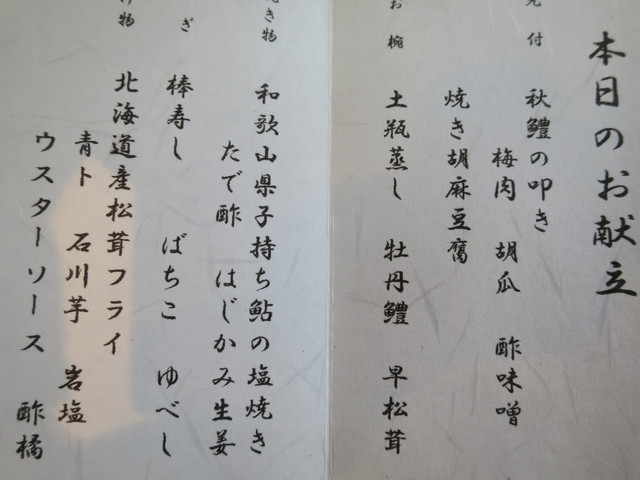 本日のお献立
先付
秋鱧の叩き
梅肉 胡瓜 酢味噌
焼き胡麻豆腐
お椀
土瓶蒸し 牡丹鱧 早松茸
き物
和歌山県子持ち鮎の塩焼き
たで酢 はじかみ生姜
ぎ
棒寿し ばちこ ゆべし
物
北海道産松茸フライ
青ト 石川芋 岩塩
ウスターソース 酢橘